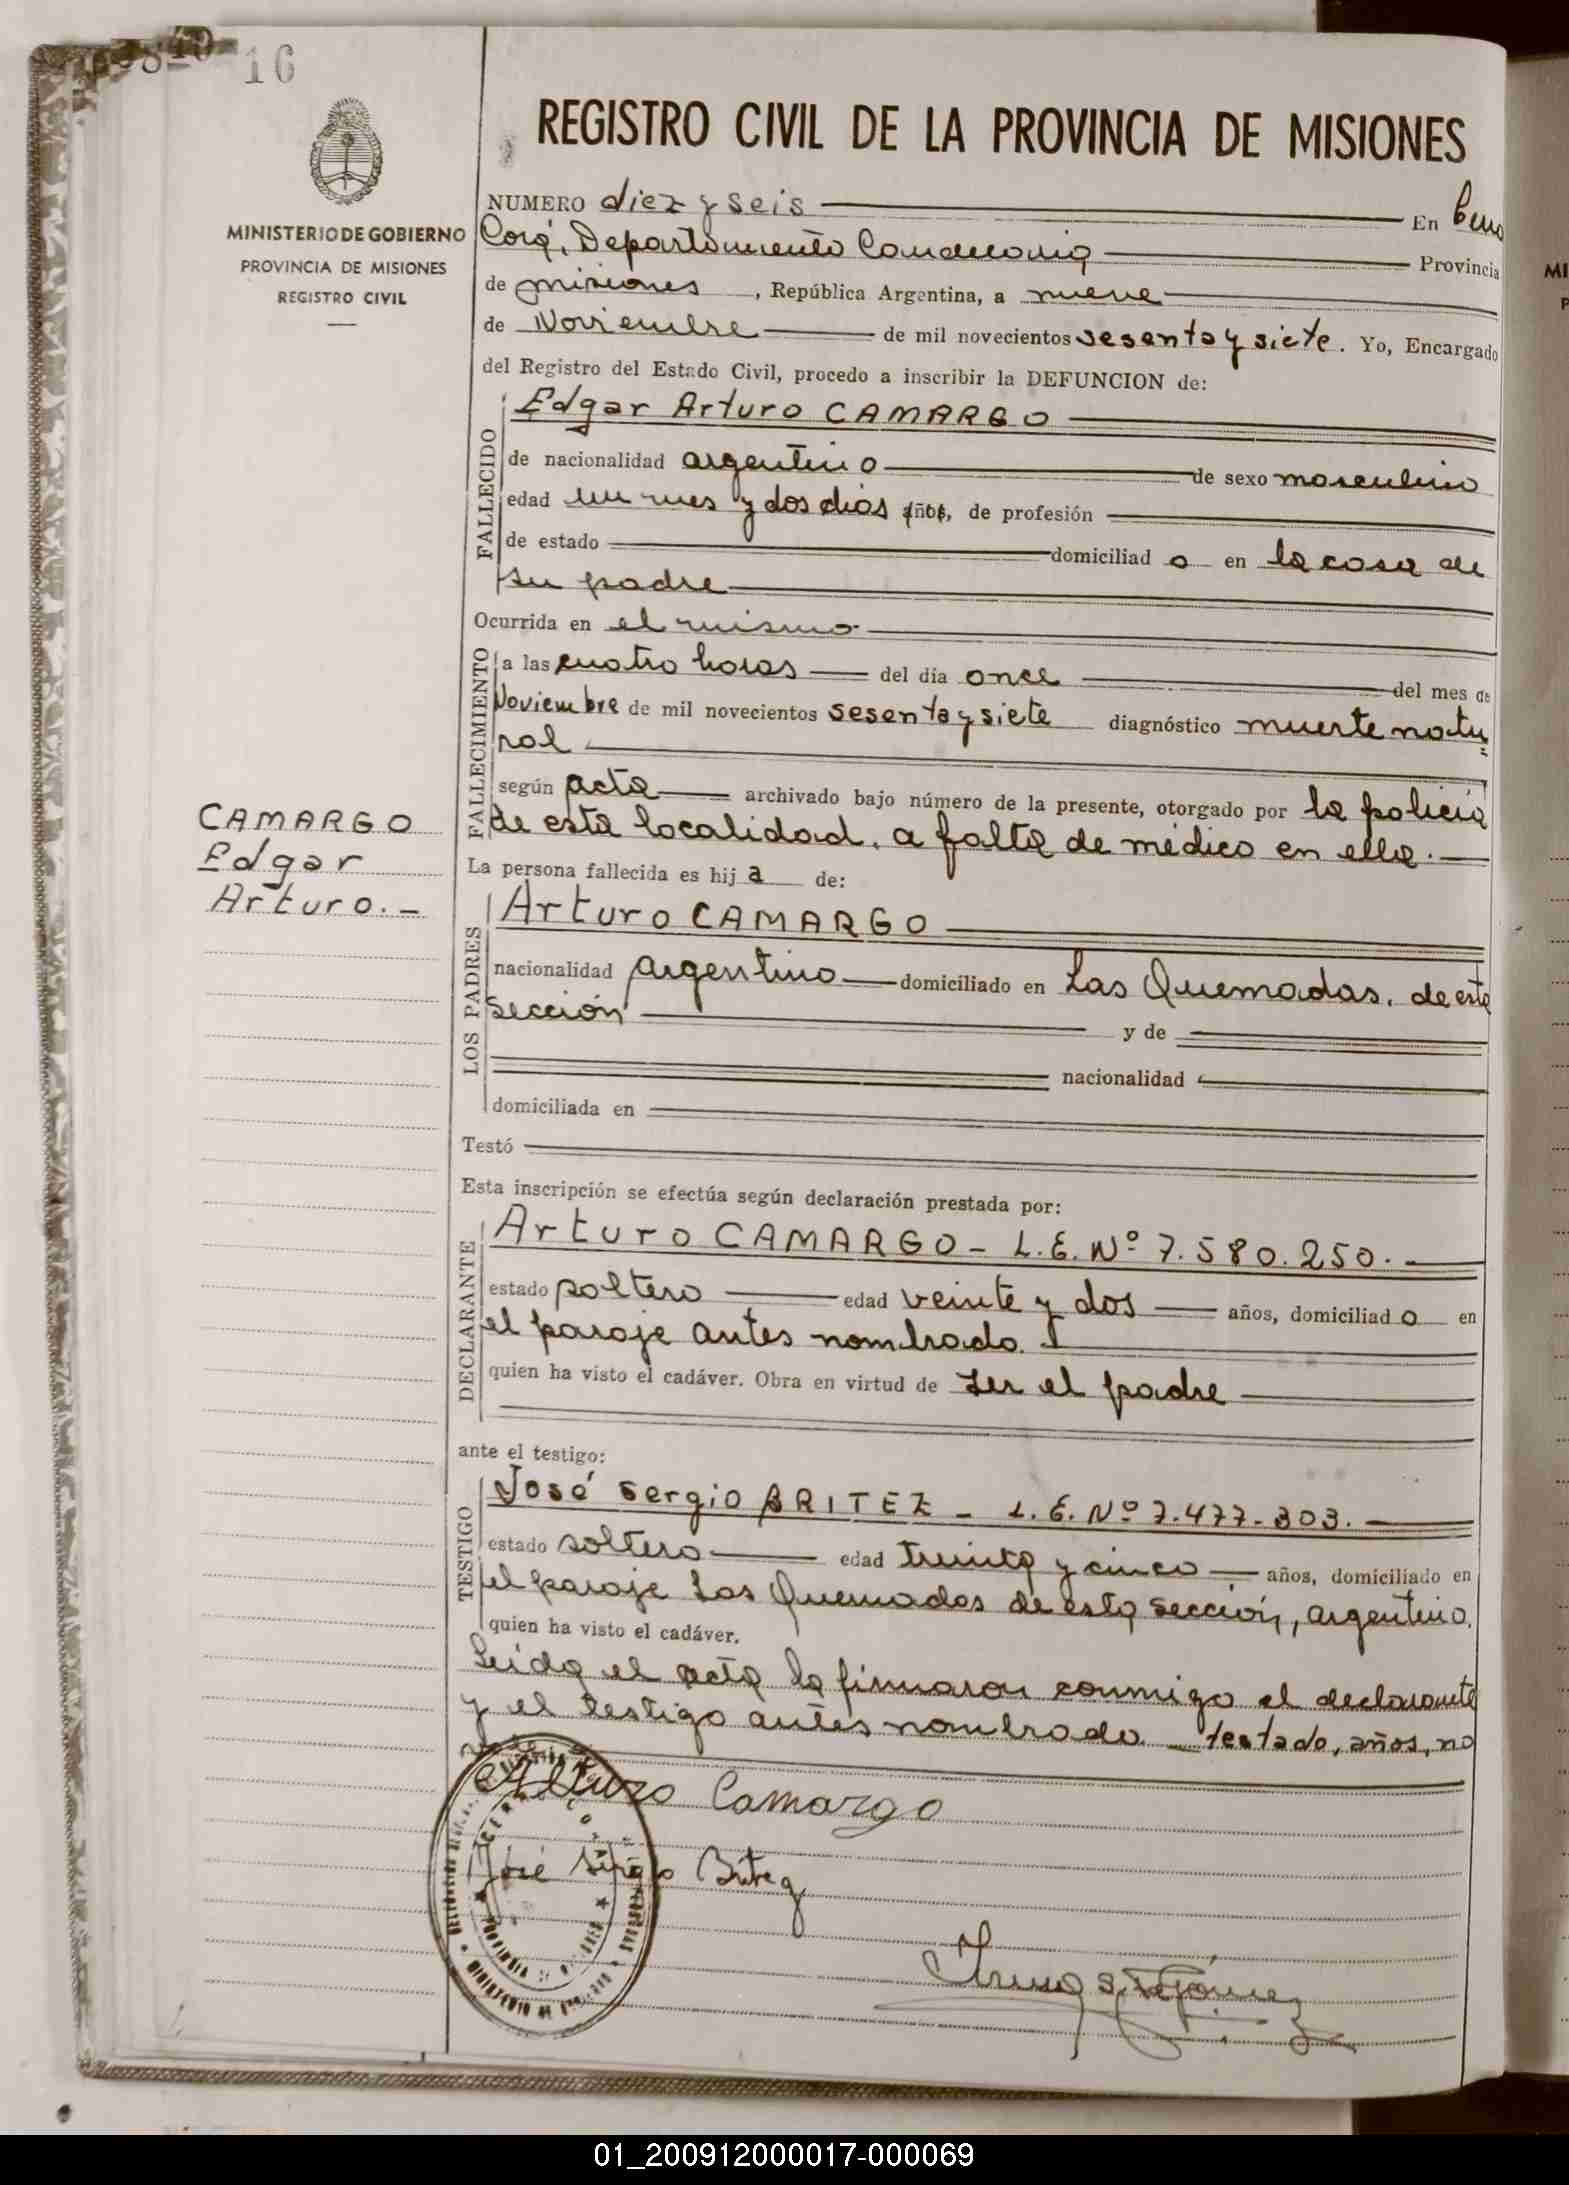 16
REGISTRO CIVIL DE LA PROVINCIA DE MISIONES
MINISTERIO DE GOBIERNO
PROVINCIA DE MISIONES
REGISTRO CIVIL
NUMERO diez y seis En Cerro
Corá, Departamento Candelaria Provincia
de Misiones, República Argentina, a nueve
de Noviembre de mil novecientos sesenta y siete. Yo, Encargado
del Registro del Estado Civil, procedo a inscribir la DEFUNCION de:
FALLECIDO
Edgar Arturo CAMARGO
de nacionalidad argentino de sexo masculino
edad un mes y dos días años, de profesión
de estado domiciliad o en la casa de
su padre
Ocurrida en el mismo
FALLECIMIENTO
a las cuatro horas del día once del mes de
Noviembre de mil novecientos sesenta y siete diagnóstico muerte natu=
ral
según acta archivado bajo número de la presente, otorgado por la policía
de esta localidad, a falta de médico en ella.
CAMARGO
Edgar
Arturo.-
La persona fallecida es hij a de:
LOS PADRES
Arturo CAMARGO
nacionalidad argentino domiciliado en Las Quemadas, de esta
sección y de
nacionalidad
domiciliada en
Testó
Esta inscripción se efectúa según declaración prestada por:
DECLARANTE
Arturo CAMARGO - L.E. Nº 7.580.250.-
estado soltero edad veinte y dos años, domiciliad o en
el paraje antes nombrado.
quien ha visto el cadáver. Obra en virtud de ser el padre
ante el testigo:
TESTIGO
José Sergio BRITEZ - L.E. Nº 7.477.303.
estado soltero edad treinta y cinco años, domiciliado en
el paraje Las Quemadas de esta sección, argentino.
quien ha visto el cadáver.
Leída el acta la firmaron conmigo el declarante
y el testigo antes nombrado. testado, años, no
Arturo Camargo
José Sergio Britez
01_200912000017-000069